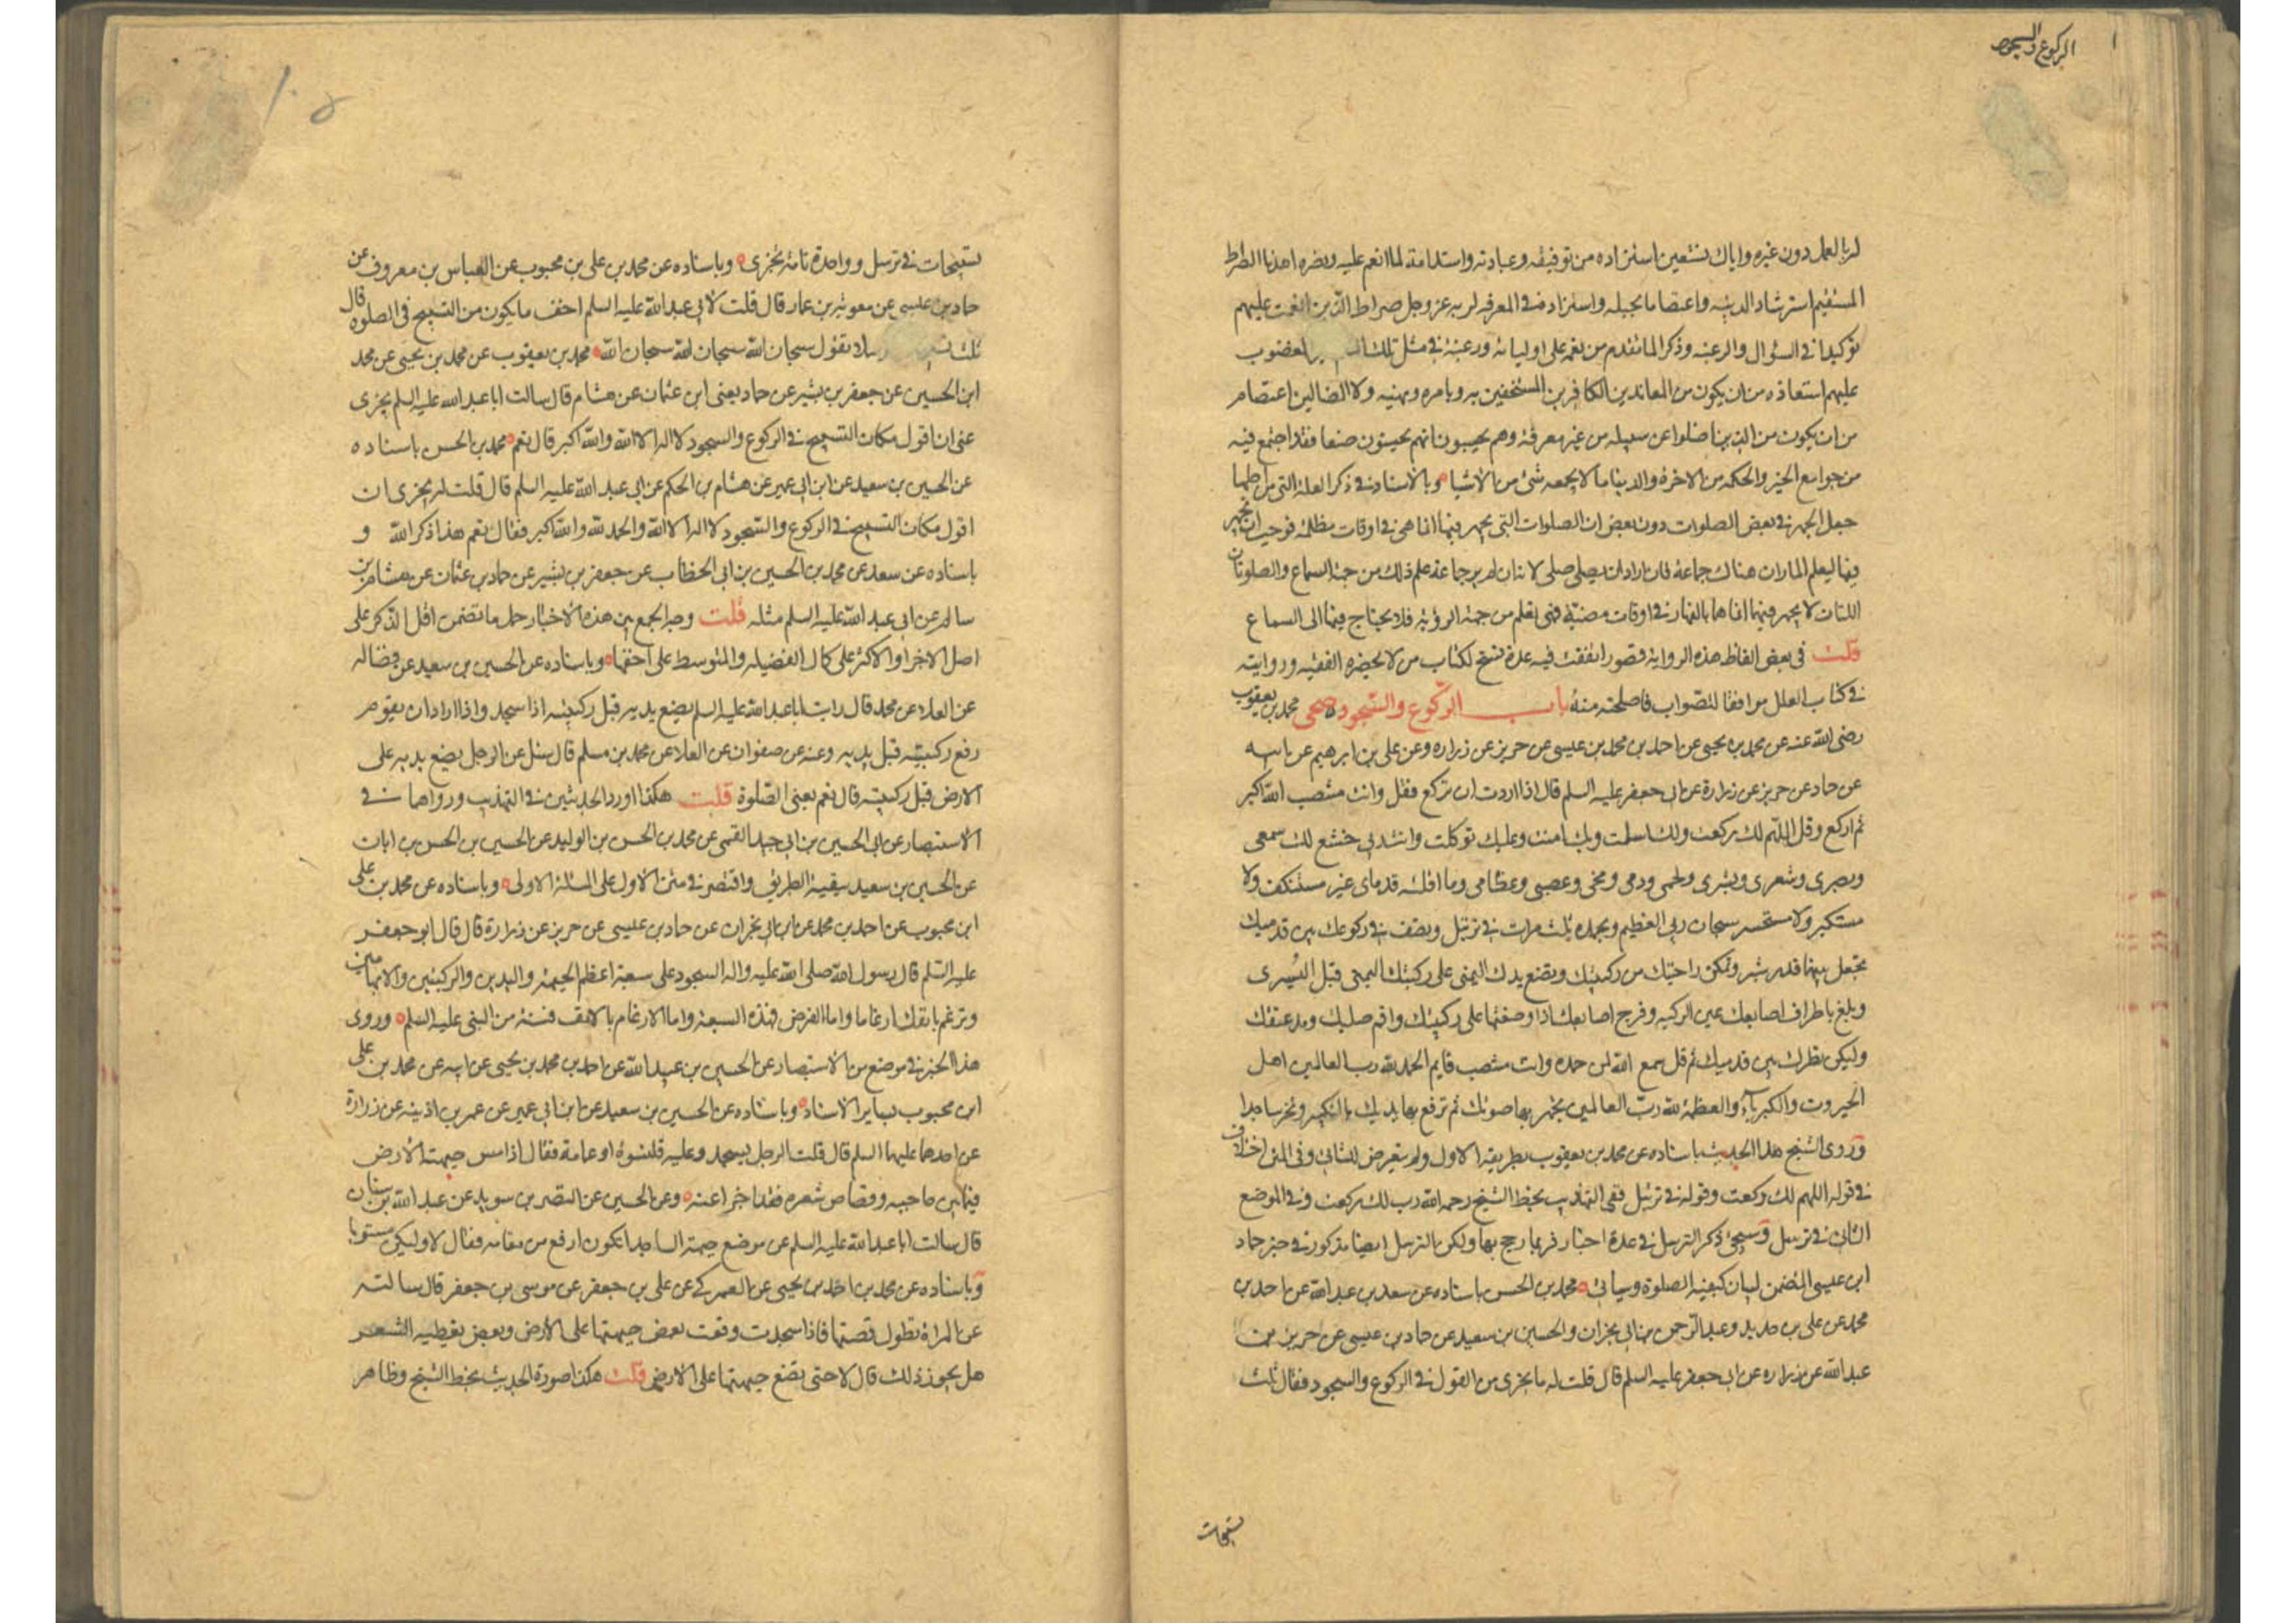 الركوع والسجود
لربه بالعمل دون غيره واياك نستعين استزاده من توفيقه وعبادته واستدامة لما انعم عليه ونصره اهدنا الصراط
المستقيم استرشاد لدينه واعتصاما بحبله واستزاده في المعرفة لربه عز وجل صراط الذين انعمت عليهم
توكيدا في السؤال والرغبه وذكر لما تقدم من نعمه على اوليائه ورغبة في مثل تلك المغضوب
عليهم استعاذه من ان يكون من المعاندين الكافرين المستخفين به وبامره ونهيه ولا الضالين اعتصام
من ان يكون من الذين ضلوا عن سبيله من غير معرفة وهم يحسبون انهم يحسنون صنعا فقد اجتمع فيه
من جوامع الخير والحكمه من الاخرة والدنيا ما لا يجمعه شئ من الاشياء وبالاسناد في ذكر العلة التي من اجلها
جعل الجهر في بعض الصلوات دون بعض ان الصلوات التي يجهر فيها انما هي في اوقات مظلمة فوجب ان يجهر
فيها ليعلم المار ان هناك جماعة فان اراد ان يصلي صلى لانه ان لم ير جماعة علم ذلك من جهة السماع والصلوتان
اللتان لا يجهر فيهما انما هما بالنهار في اوقات مضيئة فهي تعلم من جهة الرؤية فلا يحتاج فيها الى السماع
قلت في بعض الفاظ هذه الرواية قصور اتفقت فيه عدة نسخ لكتاب من لا يحضره الفقيه وروايته
في كتاب العلل موافقا للصواب فاصلحته منه باب الركوع والسجود صحى محمد بن يعقوب
رضى الله عنه عن محمد بن يحيى عن احمد بن محمد بن عيسى عن حريز عن زراره وعن علي بن ابرهيم عن ابيه
عن حماد عن حريز عن زرارة عن ابى جعفر عليه السلم قال اذا اردت ان تركع فقل وانت منتصب الله اكبر
ثم اركع وقل اللهم لك ركعت ولك اسلمت وبك امنت وعليك توكلت وانت ربي خشع لك سمعي
وبصري وشعري وبشري ولحمي ودمي ومخي وعصبي وعظامي وما اقلته قدماي غير مستنكف ولا
مستكبر ولا مستحسر سبحان ربي العظيم وبحمده ثلث مرات في ترتيل وتصف في ركوعك بين قدميك
تجعل بينهما قدر شبر وتمكن راحتيك من ركبتيك وتضع يدك اليمنى على ركبتك اليمنى قبل اليسرى
وبلغ باطراف اصابعك عين الركبه وفرج اصابعك اذا وضعتها على ركبتيك واقم صلبك ومد عنقك
وليكن نظرك بين قدميك ثم قل سمع الله لمن حمده وانت منتصب قايم الحمد لله رب العالمين اهل
الجبروت والكبرياء والعظمة لله رب العالمين تجهر بها صوتك ثم ترفع يديك بالتكبير وتخر ساجدا
وروى الشيخ هذا الحديث باسناده عن محمد بن يعقوب بطريقه الاول ولم يتعرض للثاني وفي المتن اختلاف
في قوله اللهم لك ركعت وقوله في ترتيل ففي التهذيب بخط الشيخ رحمه الله رب لك ركعت وفي الموضع
الثاني في ترسل وسيجئ ذكر الترسل في عدة اخبار فربما رجح بها ولكن الترسل ايضا مذكور في خبر حماد
ابن عيسى المتضمن لبيان كيفية الصلوة وسيأتي محمد بن الحسن باسناده عن سعد بن عبد الله عن احمد بن
محمد عن علي بن حديد وعبد الرحمن بن ابي نجران والحسين بن سعيد عن حماد بن عيسى عن حريز بن
عبد الله عن زراره عن ابى جعفر عليه السلم قال قلت له ما يجزي من القول في الركوع والسجود فقال ثلث
تسبيحات
تسبيحات في ترسل وواحدة تامة تجزى وباسناده عن محمد بن علي بن محبوب عن العباس بن معروف عن
حماد بن عيسى عن معوية بن عمار قال قلت لابي عبد الله عليه السلم اخف ما يكون من التسبيح في الصلوة قال
ثلث تقول سبحان الله سبحان الله سبحان الله محمد بن يعقوب عن محمد بن يحيى عن محمد
ابن الحسين عن جعفر بن بشير عن حماد يعني ابن عثمان عن هشام قال سالت ابا عبد الله عليه السلم يجزى
عني ان اقول مكان التسبيح في الركوع والسجود لا اله الا الله والله اكبر قال نعم محمد بن الحسن باسناده
عن الحسين بن سعيد عن ابن ابي عمير عن هشام بن الحكم عن ابي عبد الله عليه السلم قال قلت له يجزى ان
اقول مكان التسبيح في الركوع والسجود لا اله الا الله والحمد لله والله اكبر فقال نعم هذا ذكر الله و
باسناده عن سعد عن محمد بن الحسين بن ابي الخطاب عن جعفر بن بشير عن حماد بن عثمان عن هشام بن
سالم عن ابى عبد الله عليه السلم مثله قلت وجه الجمع بين هذه الاخبار حمل ما تضمن اقل الذكر على
اصل الاجزاء والاكثر على كمال الفضيله والمتوسط على اخفها وباسناده عن الحسين بن سعيد عن فضاله
عن العلا عن محمد قال رايت ابا عبد الله عليه السلم يضع يديه قبل ركبتيه اذا سجد واذا اراد ان يقوم
رفع ركبتيه قبل يديه وعنه عن صفوان عن العلا عن محمد بن مسلم قال سئل عن الرجل يضع يديه على
الارض قبل ركبتيه قال نعم يعني الصلوة قلت هكذا اورد الحديثين في التهذيب ورواهما في
الاستبصار عن ابى الحسين بن ابي جيد القمي عن محمد بن الحسن بن الوليد عن الحسين بن الحسن بن ابان
عن الحسين بن سعيد ببقية الطريق واقتصر في متن الاول على المسئلة الاولى وباسناده عن محمد بن علي
ابن محبوب عن احمد بن محمد عن ابن ابي نجران عن حماد بن عيسى عن حريز عن زرارة قال قال ابو جعفر
عليه السلم قال رسول الله صلى الله عليه واله السجود على سبعة اعظم الجبهة واليدين والركبتين والابهامين
وترغم بانفك ارغاما واما الفرض فهذه السبعة واما الارغام بالانف فسنة من النبي عليه السلم وروى
هذا الخبر في موضع من الاستبصار عن الحسين بن عبيد الله عن احمد بن محمد بن يحيى عن ابيه عن محمد بن علي
ابن محبوب بساير الاسناد وباسناده عن الحسين بن سعيد عن ابن ابي عمير عن عمر بن اذينه عن زرارة
عن احدهما عليهما السلم قال قلت الرجل يسجد وعليه قلنسوة او عمامة فقال اذا مس جبهته الارض
فيما بين حاجبيه وقصاص شعره فقد اجزا عنه وعن الحسين عن النضر بن سويد عن عبد الله بن سنان
قال سالت ابا عبد الله عليه السلم عن موضع جبهة الساجد ايكون ارفع من مقامه فقال لا وليكن مستويا
وباسناده عن محمد بن احمد بن يحيى عن العمركي عن علي بن جعفر عن موسى بن جعفر قال سالته
عن المراة تطول قصتها فاذا سجدت وقعت بعض جبهتها على الارض وبعض يغطيه الشعر
هل يجوز ذلك قال لا حتى تضع جبهتها على الارض قلت هكذا صورة الحديث بخط الشيخ وظاهر